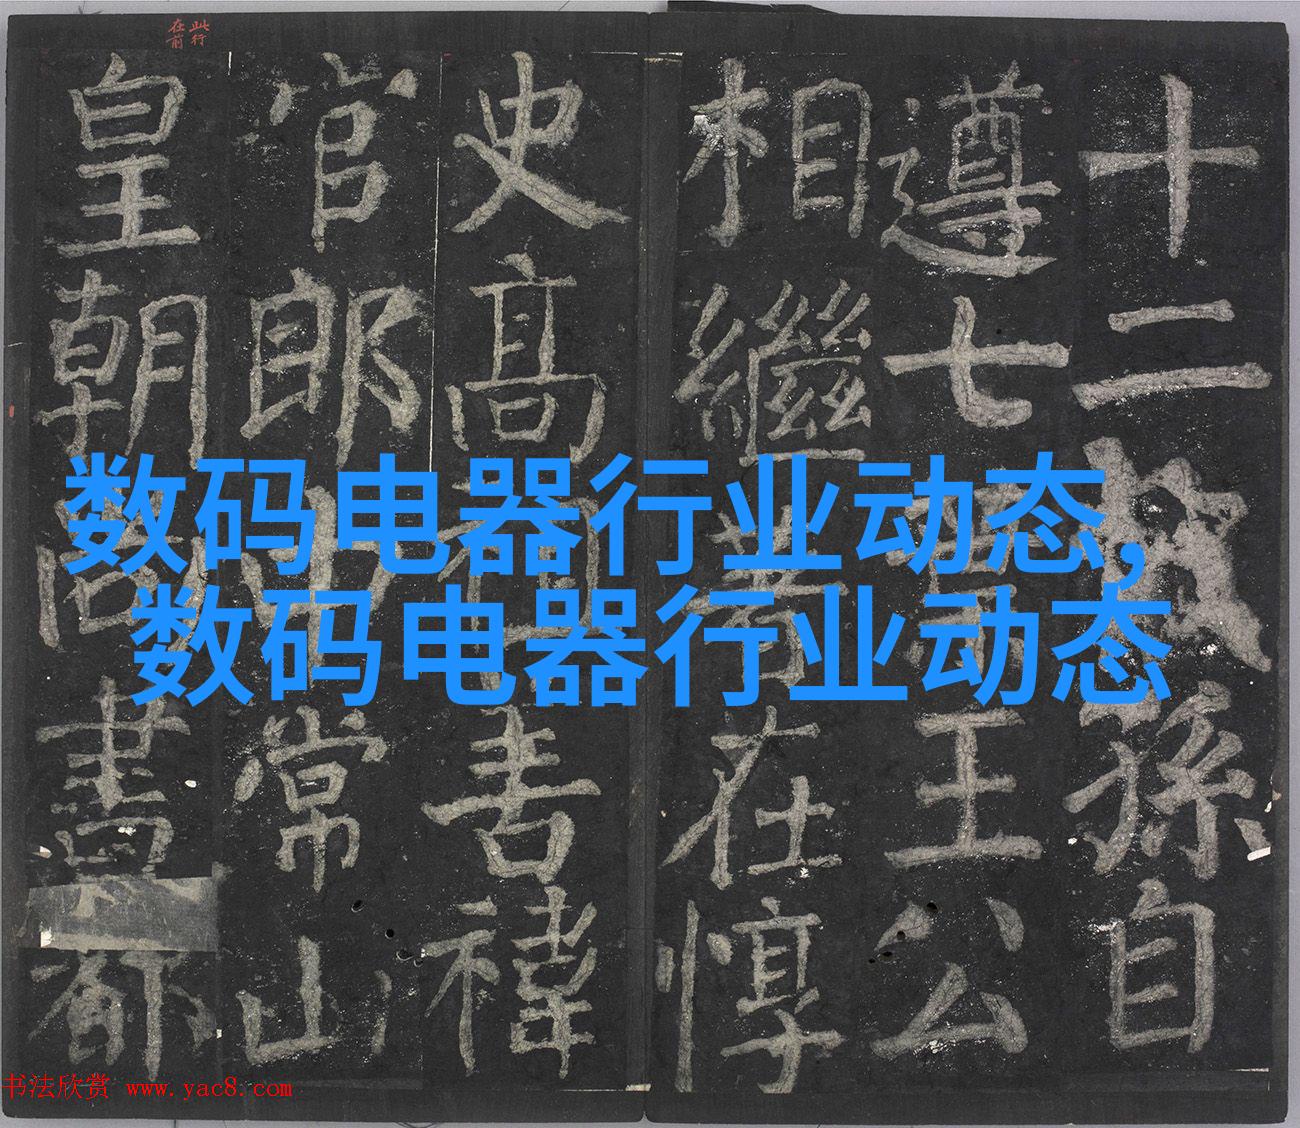 数码电器行业动态,
数码电器行业动态
此行
在前
十二孫自
遵七王公
相繼在惇
史高禕
官郎中常山
皇朝尚書都
书法欣赏 www.yac8.com